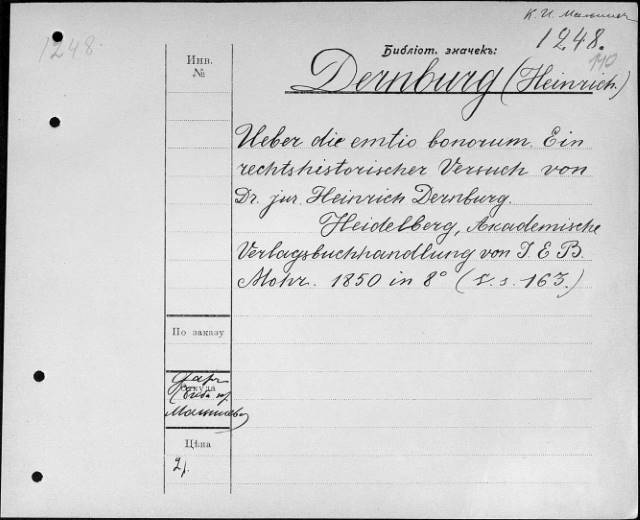 1248.
К. И.
Библіот. значекъ:
1248.
110
Инв.
№
Dernburg (Heinrich.)
Ueber die emtio bonorum. Ein
rechtshistorischer Versuch von
Dr. jur. Heinrich Dernburg.
Heidelberg, Akademische
Verlagsbuchhandlung von J. E B.
Mohr. 1850 in 8° ( s. 163.)
По заказу
Откуда
Цѣна
2р.